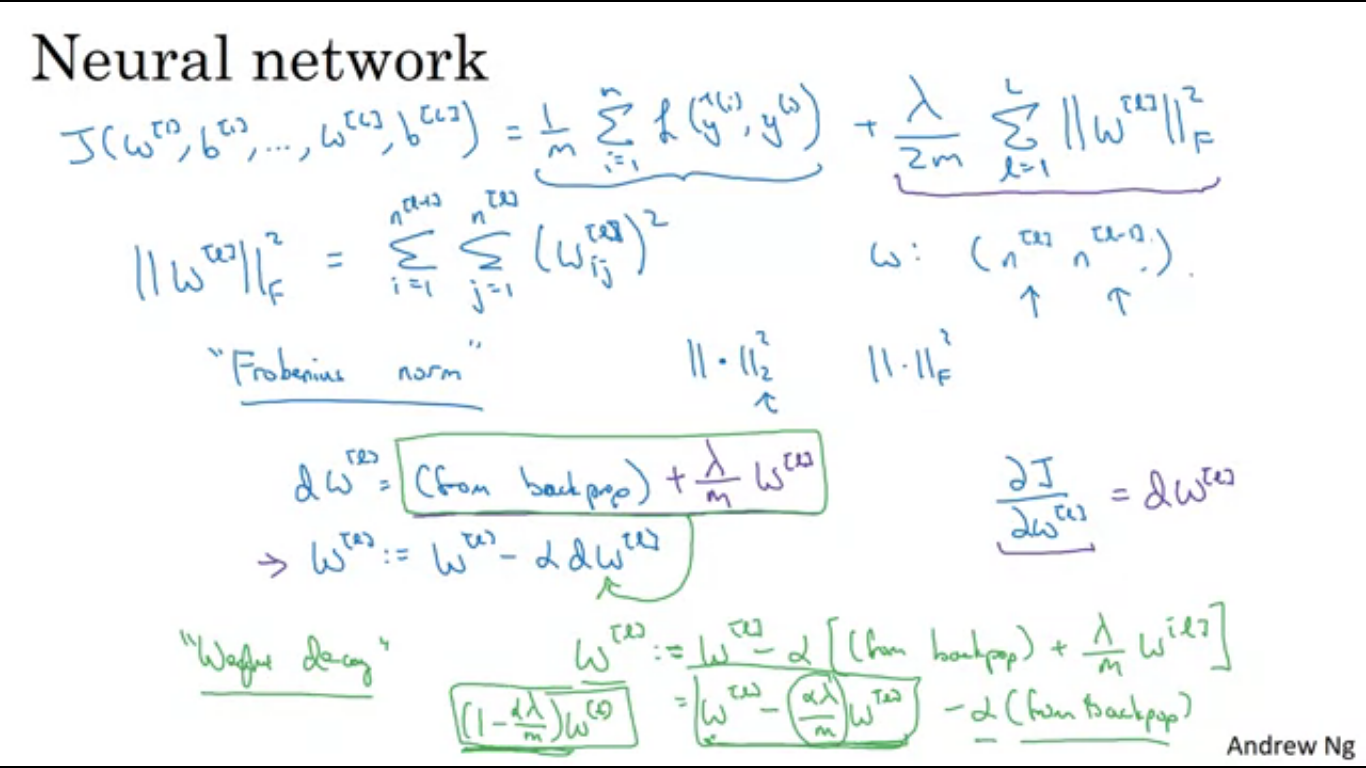 Neural network
J(w^[1], b^[1], ..., w^[L], b^[L]) = 1/m ∑_{i=1}^{n} ℒ(ŷ^(i), y^(i)) + λ/2m ∑_{l=1}^{L} ||w^[l]||_F^2
||w^[l]||_F^2 = ∑_{i=1}^{n^[l-1]} ∑_{j=1}^{n^[l]} (w_ij^[l])^2 w: (n^[l] n^[l-1]).
"Frobenius norm" ||·||_2^2 ||·||_F^2
dw^[l] = (from backprop) + λ/m w^[l] ∂J/∂w^[l] = dw^[l]
→ w^[l] := w^[l] - α dw^[l]
"Weight decay" w^[l] := w^[l] - α [(from backprop) + λ/m w^[l]]
(1 - αλ/m) w^[l] = w^[l] - αλ/m w^[l] - α (from backprop)
Andrew Ng